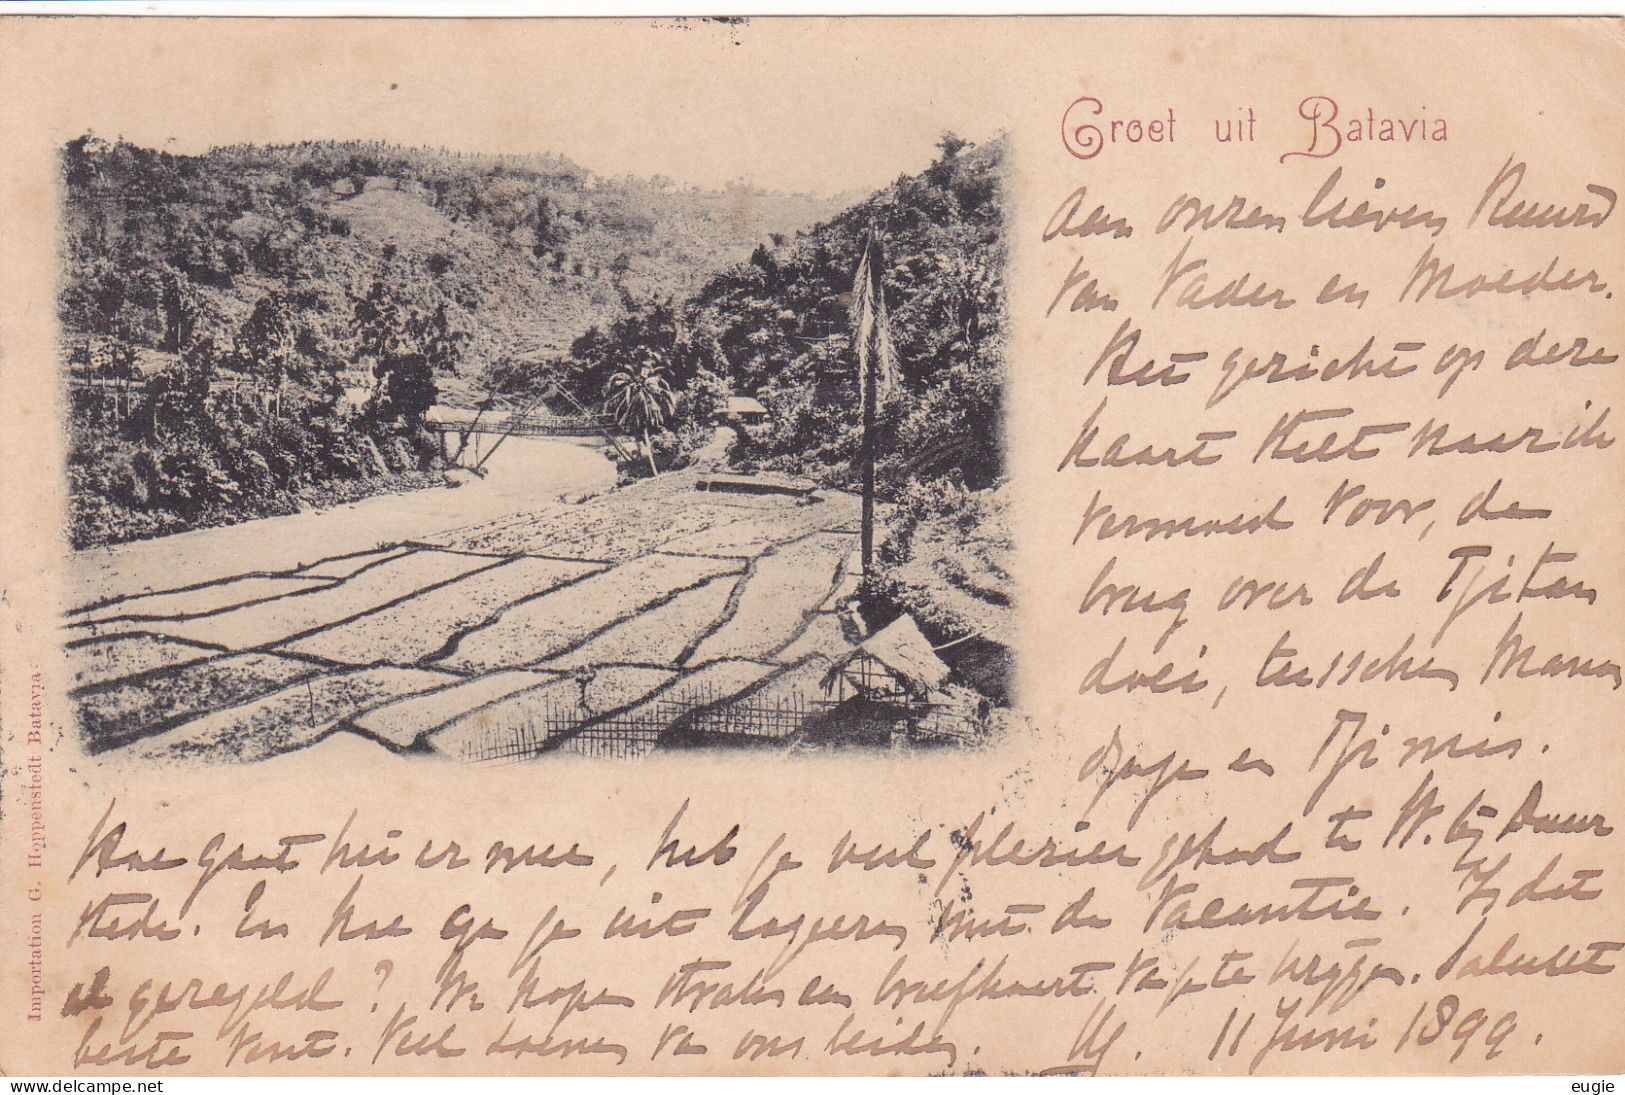 Groet uit Batavia
Aan onzen lieven Ruurd
van Vader en Moeder.
Het gezicht op deze
kaart stelt naar ik
vermoed voor, de
brug over de Tjitan
doei, tusschen Manon
djaja en Tjimis.
Hoe gaat het er mee, heb je veel plezier gehad te W. bij Duur
stede. En hoe ga je uit logeeren met de Vacantie. Is dat
al geregeld? We hopen straks een briefkaart van je te krijgen. Saluut
beste vent. Veel zoenen van ons beiden. 11 Juni 1899.
Importation G. Hoppenstedt Batavia
eugie